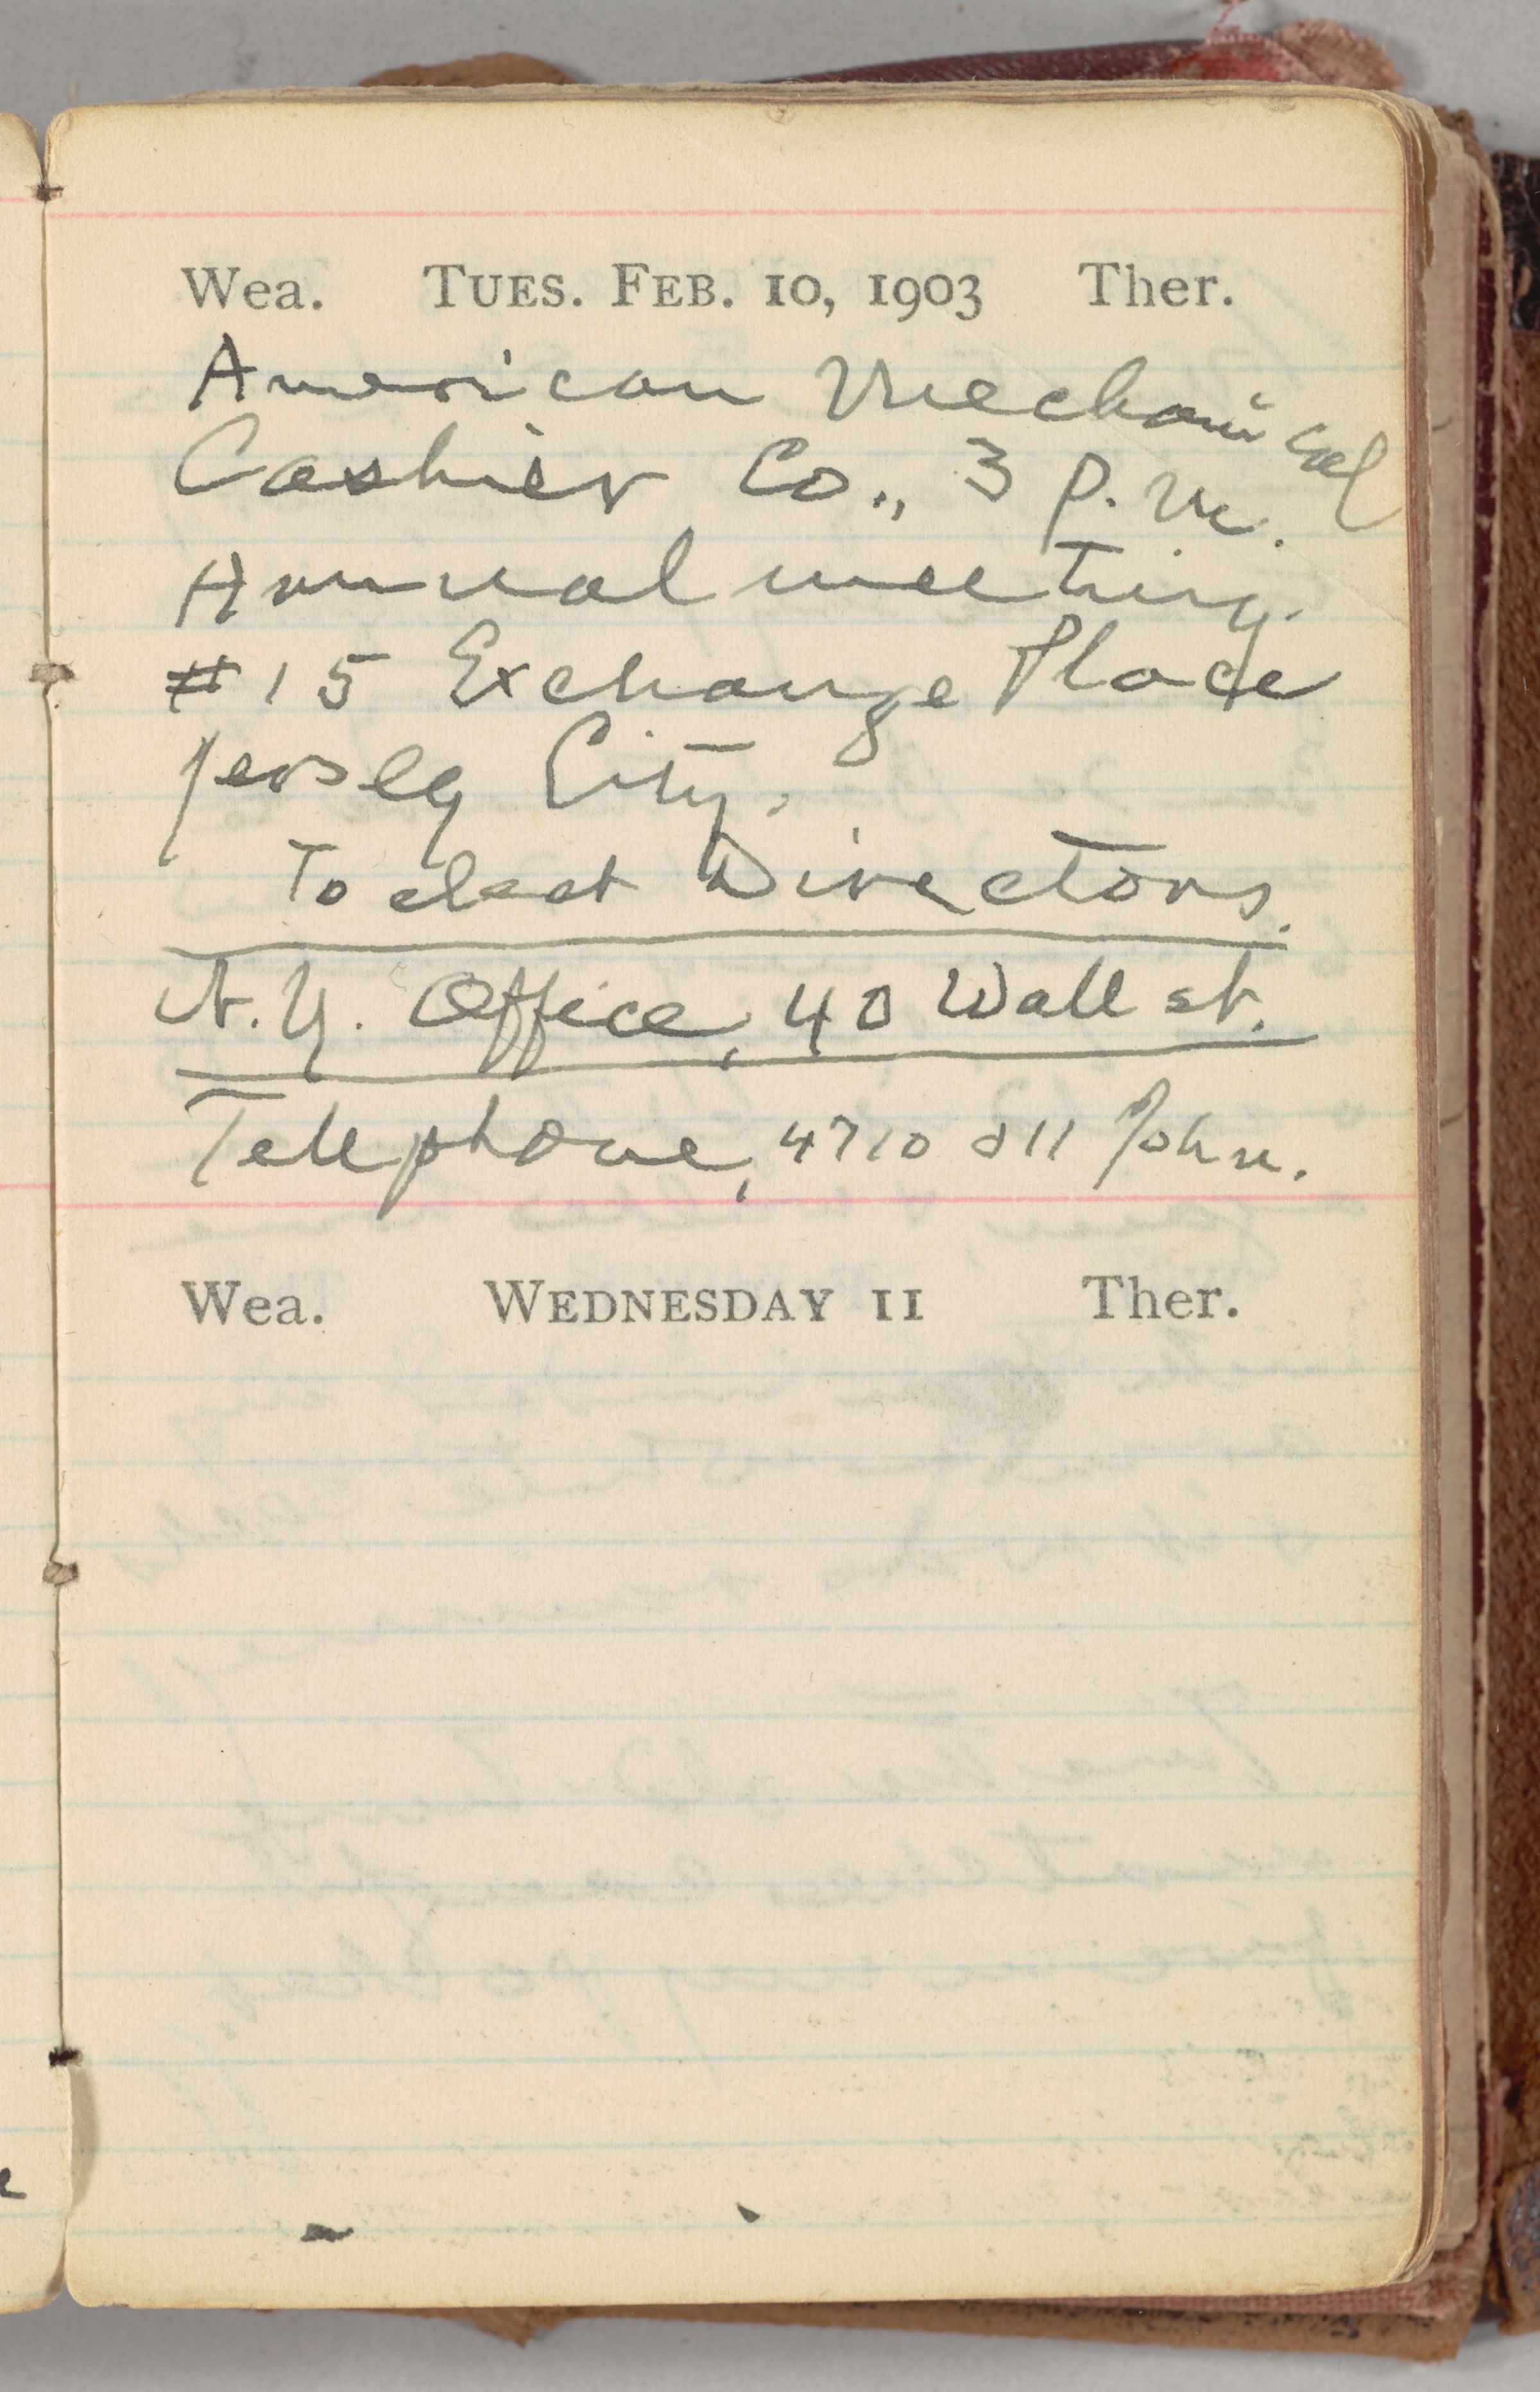 Wea. TUES. FEB. 10, 1903 Ther.
American Mechanical
Cashier Co., 3 P.M.
Annual meeting.
#15 Exchange Place
Jersey City.
To elect Directors.
N.Y. Office, 40 Wall st.
Telephone, 4710 John.
Wea. WEDNESDAY 11 Ther.